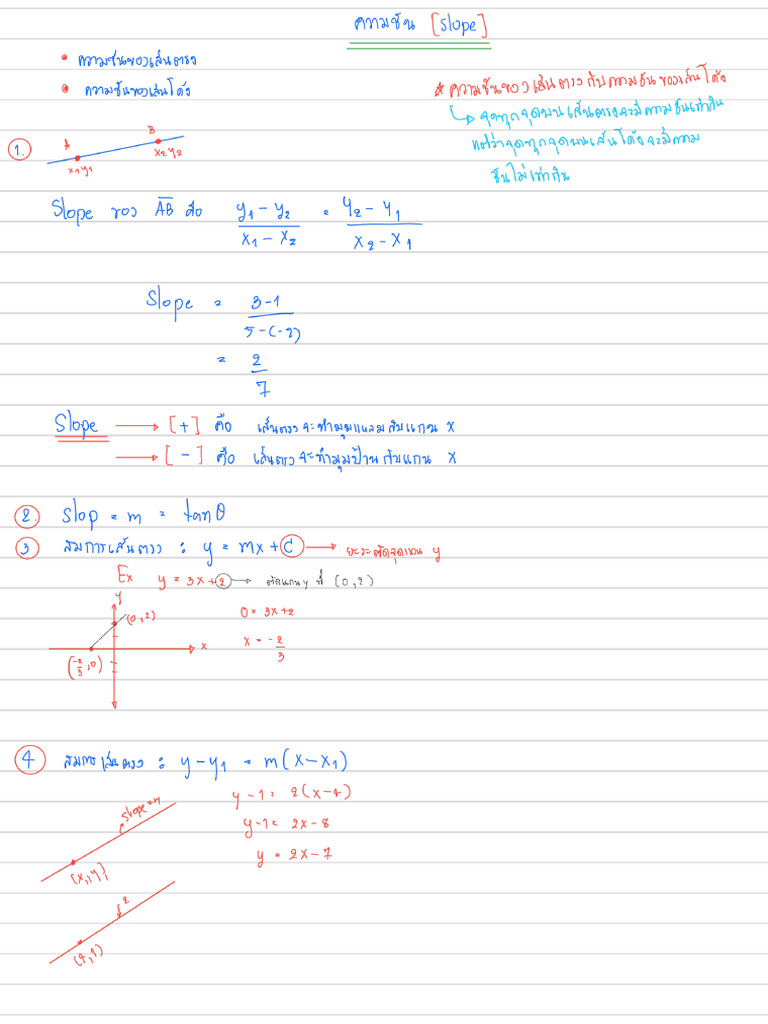 ความชัน [Slope]
• ความชันของเส้นตรง
• ความชันของเส้นโค้ง
* ความชันของเส้นตรงกับความชันของเส้นโค้ง
↳ จุดทุกจุดบนเส้นตรงจะมีความชันเท่ากัน
แต่ว่าจุดทุกจุดบนเส้นโค้งจะมีความ
ชันไม่เท่ากัน
1.
A
B
x1y1
x2y2
Slope ของ AB คือ y1 - y2 / x1 - x2 = y2 - y1 / x2 - x1
Slope = 3-1 / 5-(-2)
= 2/7
Slope → [+] คือ เส้นตรงจะทำมุมแหลมกับแกน x
→ [-] คือ เส้นตรงจะทำมุมป้านกับแกน x
2. Slop = m = tanθ
3 สมการเส้นตรง : y = mx + C → ระยะตัดจุดแกน y
Ex y = 3x+2 → ตัดแกน y ที่ (0,2)
y
(0,2)
x
(-2/3, 0)
0 = 3x+2
x = -2/3
4 สมการเส้นตรง : y-y1 = m(x-x1)
slope=m
(x1,y1)
y-1 = 2(x-4)
y-1 = 2x-8
y = 2x-7
2
(4,1)